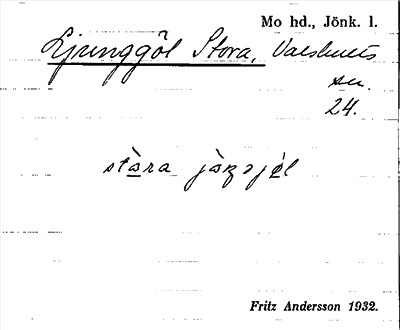 Mo hd., Jönk. l.
Ljunggöl Stora, Valshults
su.
24.
stàra jàŋəjél
Fritz Andersson 1932.